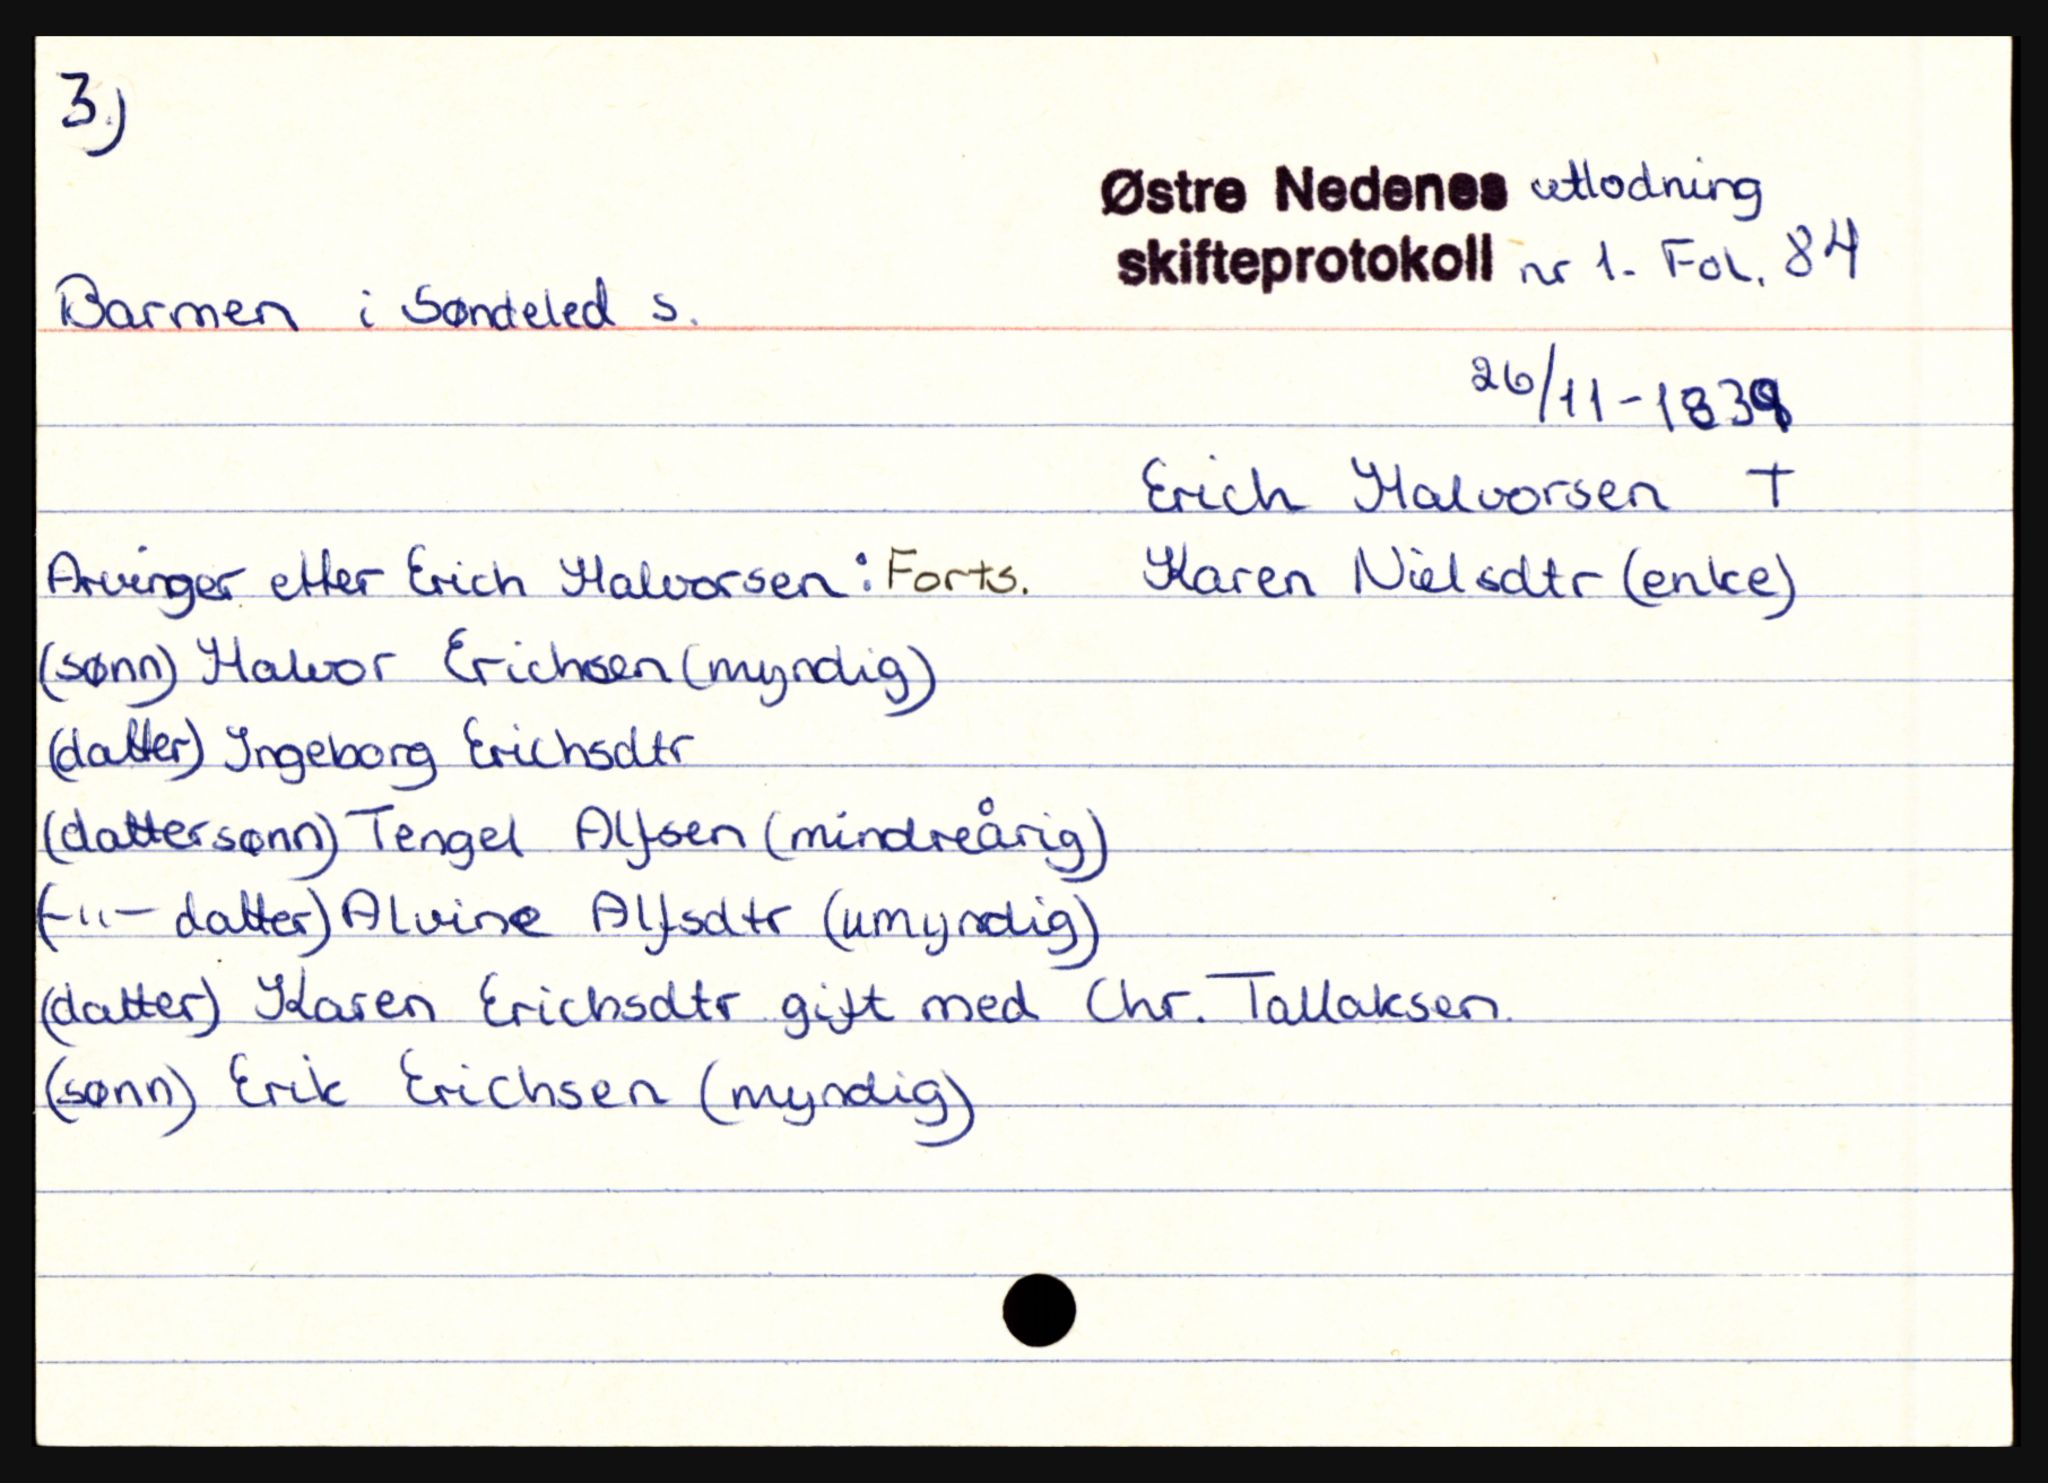 3.)
Østre Nedenes utlodning
skifteprotokoll nr 1. Fol. 84
Barmen i Søndeled s.
26/11-1839
Erich Halvorsen †
Arvinger etter Erich Halvorsen: Forts. Karen Nielsdtr (enke)
(sønn) Halvor Erichsen (myndig)
(datter) Ingeborg Erichsdtr
(dattersønn) Tengel Alfsen (mindreårig)
(-"- datter) Alvine Alfsdtr (umyndig)
(datter) Karen Erichsdtr gift med Chr. Tallaksen.
(sønn) Erik Erichsen (myndig)